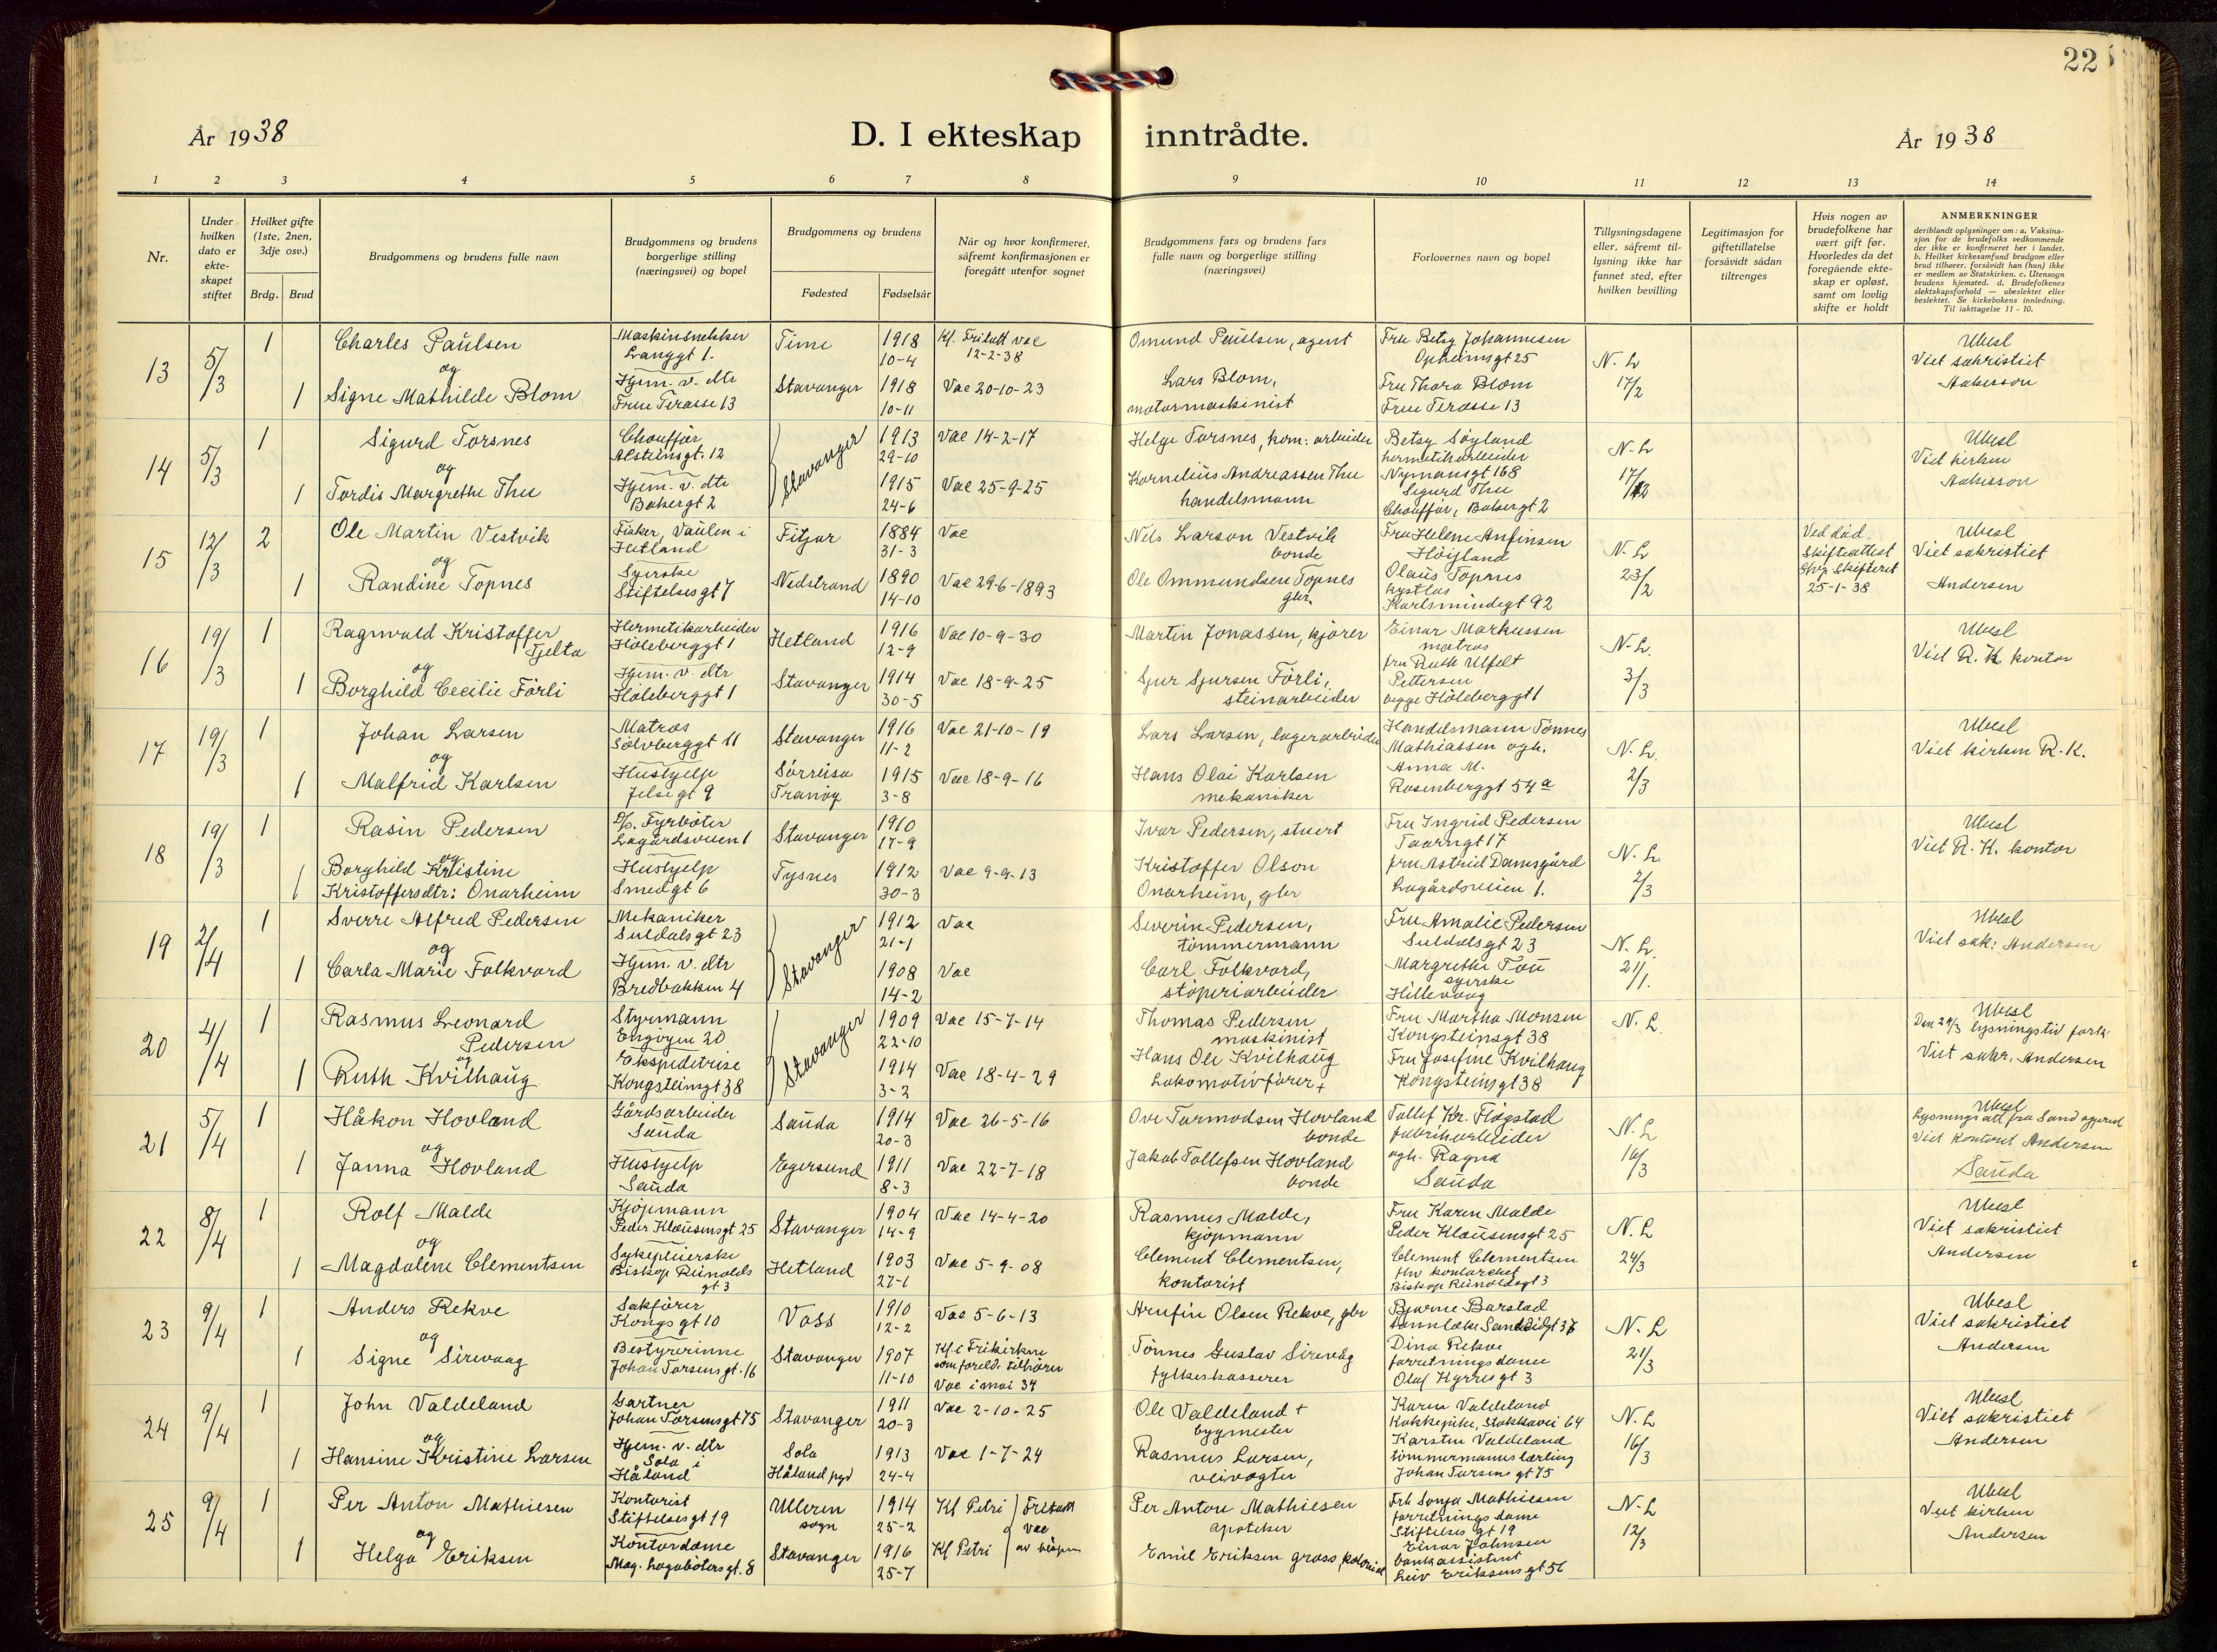 22
År 1938
D. I ekteskap inntrådte.
År 1938
1 2 3 4 5 6 7 8 9 10 11 12 13 14
Nr.
Under hvilken dato er ekteskapet stiftet
Hvilket gifte (1ste, 2nen, 3dje osv.)
Brdg. Brud
Brudgommens og brudens fulle navn
Brudgommens og brudens borgerlige stilling (næringsvei) og bopel
Brudgommens og brudens
Fødested
Fødselsår
Når og hvor konfirmeret, såfremt konfirmasjonen er foregått utenfor sognet
Brudgommens fars og brudens fars fulle navn og borgerlige stilling (næringsvei)
Forlovernes navn og bopel
Tillysningsdagene eller, såfremt tillysning ikke har funnet sted, efter hvilken bevilling
Legitimasjon for giftetillatelse forsåvidt sådan tiltrenges
Hvis nogen av brudefolkene har vært gift før. Hvorledes da det foregående ekteskap er opløst, samt om lovlig skifte er holdt
ANMERKNINGER
deriblandt oplysninger om: a. Vaksinasjon for de brudefolks vedkommende der ikke er konfirmeret her i landet. b. Hvilket kirkesamfund brudgom eller brud tilhører, forsåvidt han (hun) ikke er medlem av Statskirken. c. Utensogn brudens hjemsted. d. Brudefolkenes slektskapsforhold — ubeslektet eller beslektet. Se kirkebokens innledning. Til iakttagelse 11 - 10.
13 5/3 1 Charles Paulsen Maskinsnekker Langgt 1. Time 1918 10-4 Kf. Fritatt vac 12-2-38 Omund Paulsen, agent Fru Betsy Johannesen Opheimsgt 25 N. L. 17/2 Ubesl Viet sakristiet
og
1 Signe Mathilde Blom Hjem. v. dtr Frue Terasse 13 Stavanger 1918 10-11 Vac 20-10-23 Lars Blom, motormaskinist Fru Thora Blom Frue Terasse 13
14 5/3 1 Sigurd Torsnes Chauffør Alsteinsgt. 12 Stavanger 1913 29-10 Vac 14-2-17 Helge Torsnes, kom: arbeider Betsy Søyland hermetikarbeider Nymansgt 168 N. L. Ubesl Viet kirken
og
1 Tordis Margrethe Thu Hjem. v. dtr Bakergt 2 1915 24-6 Vac 25-9-25 Kornelius Andreassen Thu handelsmann Sigurd Thu Chauffør, Bakergt 2
15 12/3 2 Ole Martin Vestvik Fisker, Vaulen i Hetland Fitjar 1884 31-3 Vac Nils Larson Vestvik bonde Fru Helene Anfinsen Høigland N. L. 23/2 Ved død. Skifteattest 25-1-38 Ubesl Viet sakristiet Andersen
og
1 Randine Topnes Syerske Stiftelsesgt 7 Nedstrand 1890 14-10 Vac 29-6-1893 Ole Ommundsen Topnes gbr. Olaus Topnes Karlsmindegt 92
16 19/3 1 Ragnvald Kristoffer Tjelta Hermetikarbeider Høleberggt 1 Hetland 1916 12-9 Vac 10-9-30 Martin Jonassen, kjører Einar Markussen matros N. L. 3/3 Ubesl Viet R. K. kontor
og
1 Borghild Cecilie Førli Hjem. v. dtr Høleberggt 1 Stavanger 1914 30-5 Vac 18-9-25 Sjur Sjursen Førli, steinarbeider fru Ruth Ulfelt Pettersen begge Høleberggt 1
17 19/3 1 Johan Larsen Matros Sølvberggt 11 Stavanger 1916 11-2 Vac 21-10-19 Lars Larsen, lagerarbeider Handelsmann Tønnes Mathiassen ogh. N. L. 2/3 Ubesl Viet kirken R. K.
og
1 Malfrid Karlsen Hushjelp Jelsegt 9 Sørreisa Tranøy 1915 3-8 Vac 18-9-16 Hans Olai Karlsen mekaniker Anna M. Rosenberggt 54 a
18 19/3 1 Rasin Pedersen D/s. Fyrbøter Lagårdsveien 1 Stavanger 1910 17-9 Ivar Pedersen, stuert Fru Ingrid Pedersen Taarngt 17 N. L. 2/3 Ubesl Viet R. K. kontor
og
1 Borghild Kristine Kristoffersdtr: Onarheim Hushjelp Smedgt 6 Tysnes 1912 30-3 Vac 9-9-13 Kristoffer Olson Onarheim, gbr fru Astrid Damsgård Lagårdsveien 1.
19 2/4 1 Sverre Alfred Pedersen Mekaniker Suldalsgt 23 Stavanger 1912 21-1 Vac Severin Pedersen, tømmermann Fru Amalie Pedersen Suldalsgt 23 N. L. 21/1. Ubesl Viet sak: Andersen
og
1 Carla Marie Folkvord Hjem. v. dtr Bredbakken 4 1908 14-2 Vac Carl Folkvord, støperiarbeider Margrethe Tou syerske Hillevaag
20 4/4 1 Rasmus Leonard Pedersen Styrmann Engøyen 20 Stavanger 1909 22-10 Vac 15-7-14 Thomas Pedersen maskinist Fru Martha Monsen Kongsteinsgt 38 N. L. Ubesl Viet sakr. Andersen
og
1 Ruth Kvilhaug Ekspeditrise Kongsteinsgt 38 1914 3-2 Vac 18-4-29 Hans Ole Kvilhaug Lokomotivfører + Fru Josefine Kvilhaug Kongsteinsgt 38
21 5/4 1 Håkon Hovland Gårdsarbeider Sauda Sauda 1914 20-3 Vac 26-5-16 Ove Tormodsen Hovland bonde Tollef Kr. Fløgstad fabrikarbeider N. L. 16/3 Ubesl Viet kontoret Andersen Sauda
og
1 Janna Hovland Hushjelp Sauda Egersund 1911 8-3 Vac 22-7-18 Jakob Tollefsen Hovland bonde ogh. Ragna Sauda
22 8/4 1 Rolf Malde Kjøpmann Peder Klausensgt 25 Stavanger 1904 14-9 Vac 14-4-20 Rasmus Malde, kjøpmann Fru Karen Malde Peder Klausensgt 25 N. L. 24/3 Ubesl Viet sakristiet Andersen
og
1 Magdalene Clementsen Sykepleierske Biskop Reinolds gt 3 Hetland 1903 27-1 Vac 5-9-08 Clement Clementsen, kontorist Clement Clementsen Biskop Reinoldsgt 3
23 9/4 1 Anders Rekve Sakfører Kongsgt 10 Voss 1910 12-2 Vac 5-6-13 Arnfin Olsen Rekve, gbr Bjarne Barstad N. L. 21/3 Ubesl Viet sakristiet Andersen
og
1 Signe Sirevaag Bestyrerinne Johan Torsensgt. 16 Stavanger 1907 11-10 Kf i Frikirken som foreld. tilhører Vac i mai 34 Tønnes Gustav Sirevåg fylkeskasserer Dina Rekve forretningsdame Olaf Kyrresgt 3
24 9/4 1 John Valdeland Gartner Johan Torsensgt 75 Stavanger 1911 20-3 Vac 2-10-25 Ole Valdeland + bygmester Karen Valdeland Kokkepike, Stokkavei 64 N. L. 16/3 Ubesl Viet sakristiet Andersen
og
1 Hansine Kristine Larsen Hjem. v. dtr Sola i Håland Sola Håland pgd 1913 24-4 Vac 1-7-24 Rasmus Larsen, veivogter Karsten Valdeland tømmermannslærling Johan Torsensgt 75
25 9/4 1 Per Anton Mathiesen Kontorist Stiftelsesgt 19 Ullern sogn 1914 25-2 Kf Petri Fritatt vac Per Antone Mathiesen apoteker Frk Sonja Mathiesen forretningsdame Stiftelsesgt 19 N. L. 12/3 Ubesl Viet kirken Andersen
og
1 Helga Eriksen Kontordame Mag. Lagabøtersgt. 8 Stavanger 1916 25-7 Kf Petri Emil Eriksen gross, kolonial Einar Johnsen bankassistent Leiv Eriksensgt 56